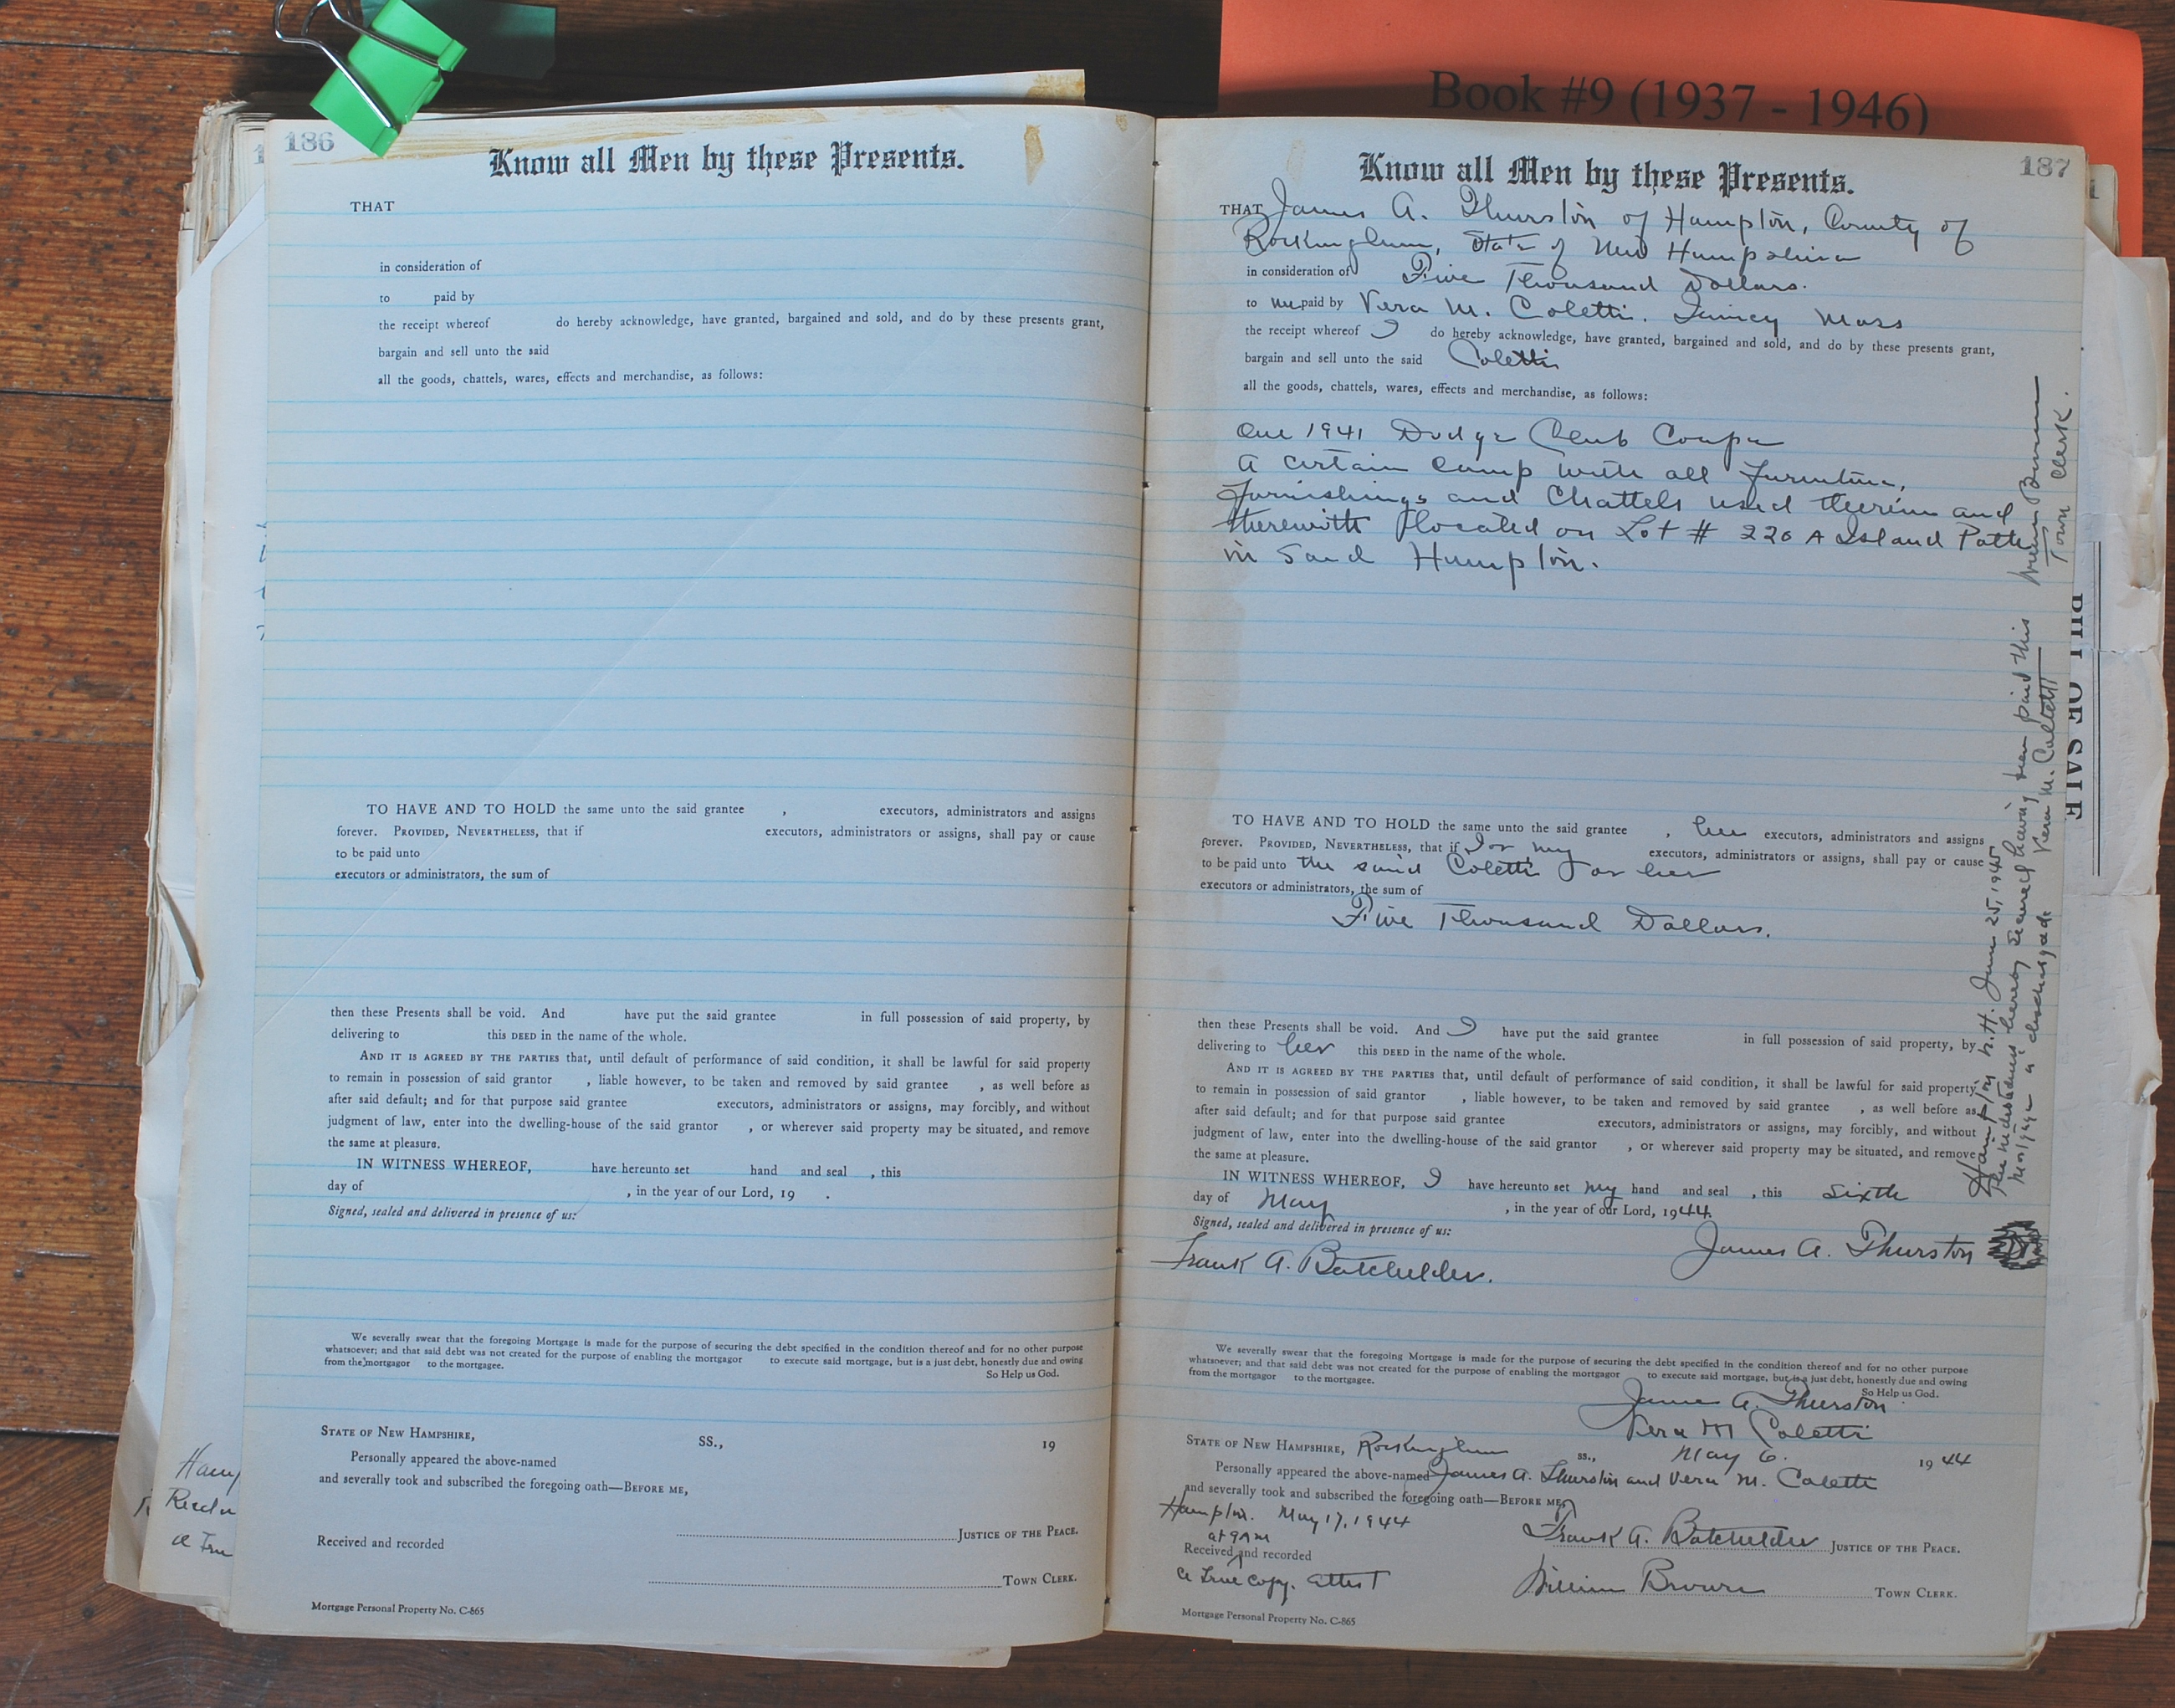 Book #9 (1937 - 1946)
186
Know all Men by these Presents.
THAT
in consideration of
to paid by
the receipt whereof do hereby acknowledge, have granted, bargained and sold, and do by these presents grant,
bargain and sell unto the said
all the goods, chattels, wares, effects and merchandise, as follows:
TO HAVE AND TO HOLD the same unto the said grantee , executors, administrators and assigns
forever. PROVIDED, NEVERTHELESS, that if executors, administrators or assigns, shall pay or cause
to be paid unto
executors or administrators, the sum of
then these Presents shall be void. And have put the said grantee in full possession of said property, by
delivering to this DEED in the name of the whole.
AND IT IS AGREED BY THE PARTIES that, until default of performance of said condition, it shall be lawful for said property
to remain in possession of said grantor , liable however, to be taken and removed by said grantee , as well before as
after said default; and for that purpose said grantee executors, administrators or assigns, may forcibly, and without
judgment of law, enter into the dwelling-house of the said grantor , or wherever said property may be situated, and remove
the same at pleasure.
IN WITNESS WHEREOF, have hereunto set hand and seal , this
day of , in the year of our Lord, 19 .
Signed, sealed and delivered in presence of us:
We severally swear that the foregoing Mortgage is made for the purpose of securing the debt specified in the condition thereof and for no other purpose
whatsoever; and that said debt was not created for the purpose of enabling the mortgagor to execute said mortgage, but is a just debt, honestly due and owing
from the mortgagor to the mortgagee.
So Help us God.
STATE OF NEW HAMPSHIRE, SS., 19
Personally appeared the above-named
and severally took and subscribed the foregoing oath—BEFORE ME,
JUSTICE OF THE PEACE.
Received and recorded
TOWN CLERK.
Mortgage Personal Property No. C-865
187
Know all Men by these Presents.
THAT James A. Thurston of Hampton, County of
Rockingham, State of New Hampshire
in consideration of Five Thousand Dollars.
to me paid by Vera M. Coletti. Quincy Mass
the receipt whereof I do hereby acknowledge, have granted, bargained and sold, and do by these presents grant,
bargain and sell unto the said Coletti
all the goods, chattels, wares, effects and merchandise, as follows:
One 1941 Dodge Club Coupe
A certain camp with all furniture,
furnishings and Chattels used therein and
therewith located on Lot # 220 A Island Path
in Said Hampton.
TO HAVE AND TO HOLD the same unto the said grantee , her executors, administrators and assigns
forever. PROVIDED, NEVERTHELESS, that if I or my executors, administrators or assigns, shall pay or cause
to be paid unto the said Coletti or her
executors or administrators, the sum of
Five Thousand Dollars.
then these Presents shall be void. And I have put the said grantee in full possession of said property, by
delivering to her this DEED in the name of the whole.
AND IT IS AGREED BY THE PARTIES that, until default of performance of said condition, it shall be lawful for said property
to remain in possession of said grantor , liable however, to be taken and removed by said grantee , as well before as
after said default; and for that purpose said grantee executors, administrators or assigns, may forcibly, and without
judgment of law, enter into the dwelling-house of the said grantor , or wherever said property may be situated, and remove
the same at pleasure.
IN WITNESS WHEREOF, I have hereunto set my hand and seal , this Sixth
day of May , in the year of our Lord, 1944.
Signed, sealed and delivered in presence of us:
Frank A. Batchelder. James A. Thurston
We severally swear that the foregoing Mortgage is made for the purpose of securing the debt specified in the condition thereof and for no other purpose
whatsoever; and that said debt was not created for the purpose of enabling the mortgagor to execute said mortgage, but is a just debt, honestly due and owing
from the mortgagor to the mortgagee.
So Help us God.
James A. Thurston
Vera M Coletti
STATE OF NEW HAMPSHIRE, Rockingham ss., May 6. 19 44
Personally appeared the above-named James A. Thurston and Vera M. Coletti
and severally took and subscribed the foregoing oath—BEFORE ME,
Hampton. May 17, 1944
at 9 AM
Frank A. Batchelder JUSTICE OF THE PEACE.
Received and recorded
A True Copy. Attest William Brown TOWN CLERK.
Mortgage Personal Property No. C-865
Hampton N.H. June 25, 1945
The indebtedness hereby secured having been paid this
Mortgage is discharged Vera M. Coletti
William Brown
Town Clerk.
BILL OF SALE